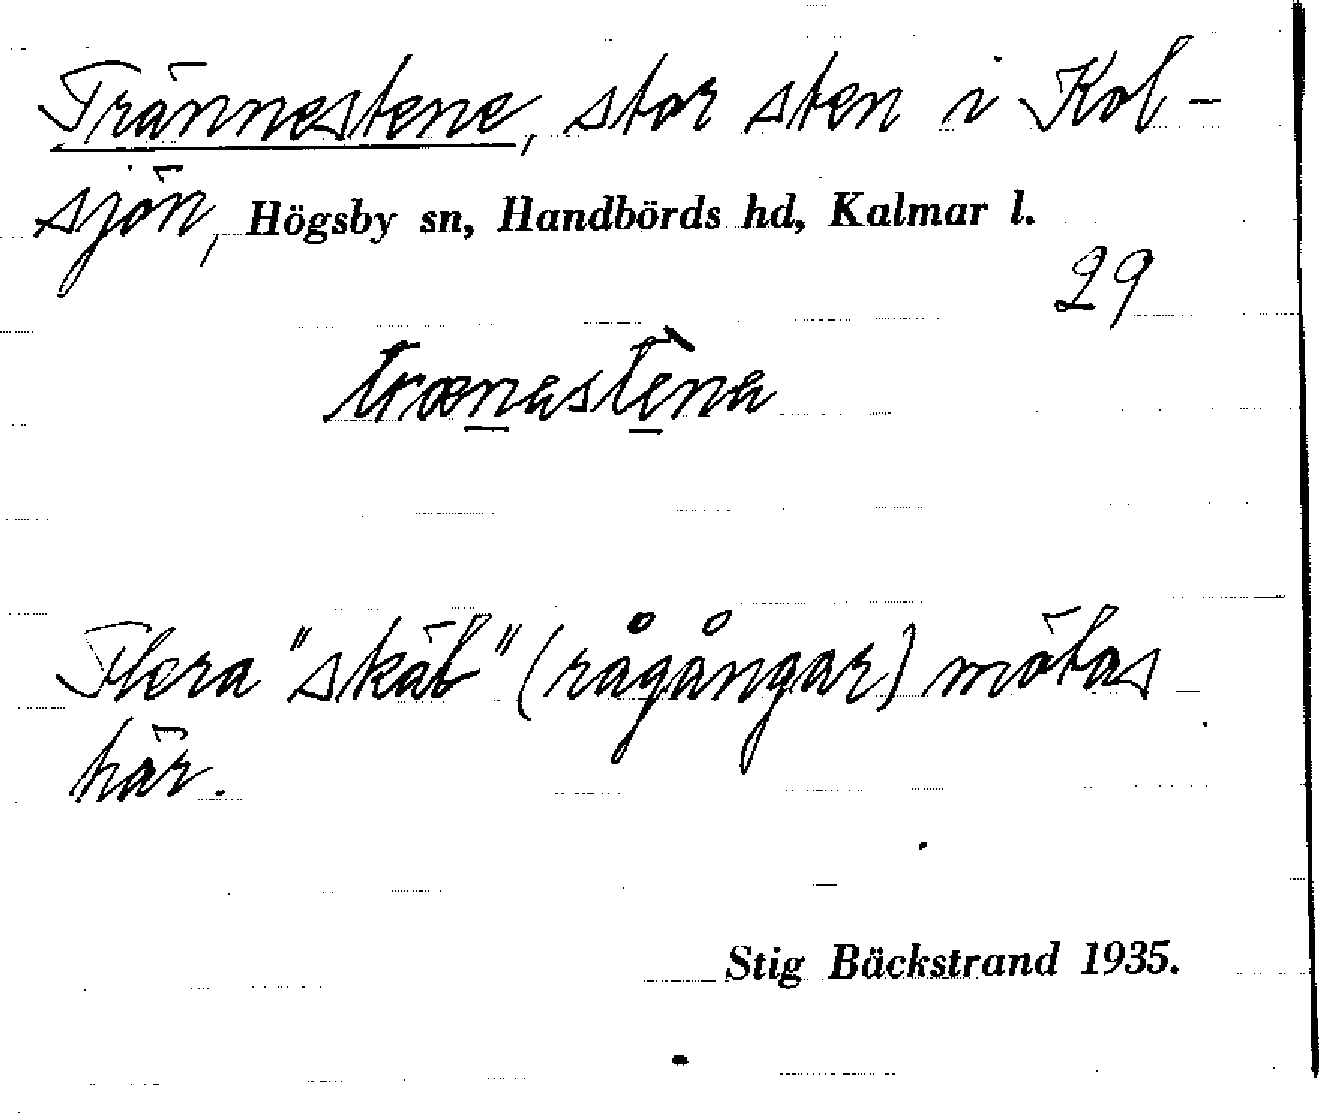 Trännestene, stor sten i Kol-
sjön, Högsby sn, Handbörds hd, Kalmar l.
29
trænəstenə
Flera "skäl" (rågångar) mötas
här.
Stig Bäckstrand 1935.